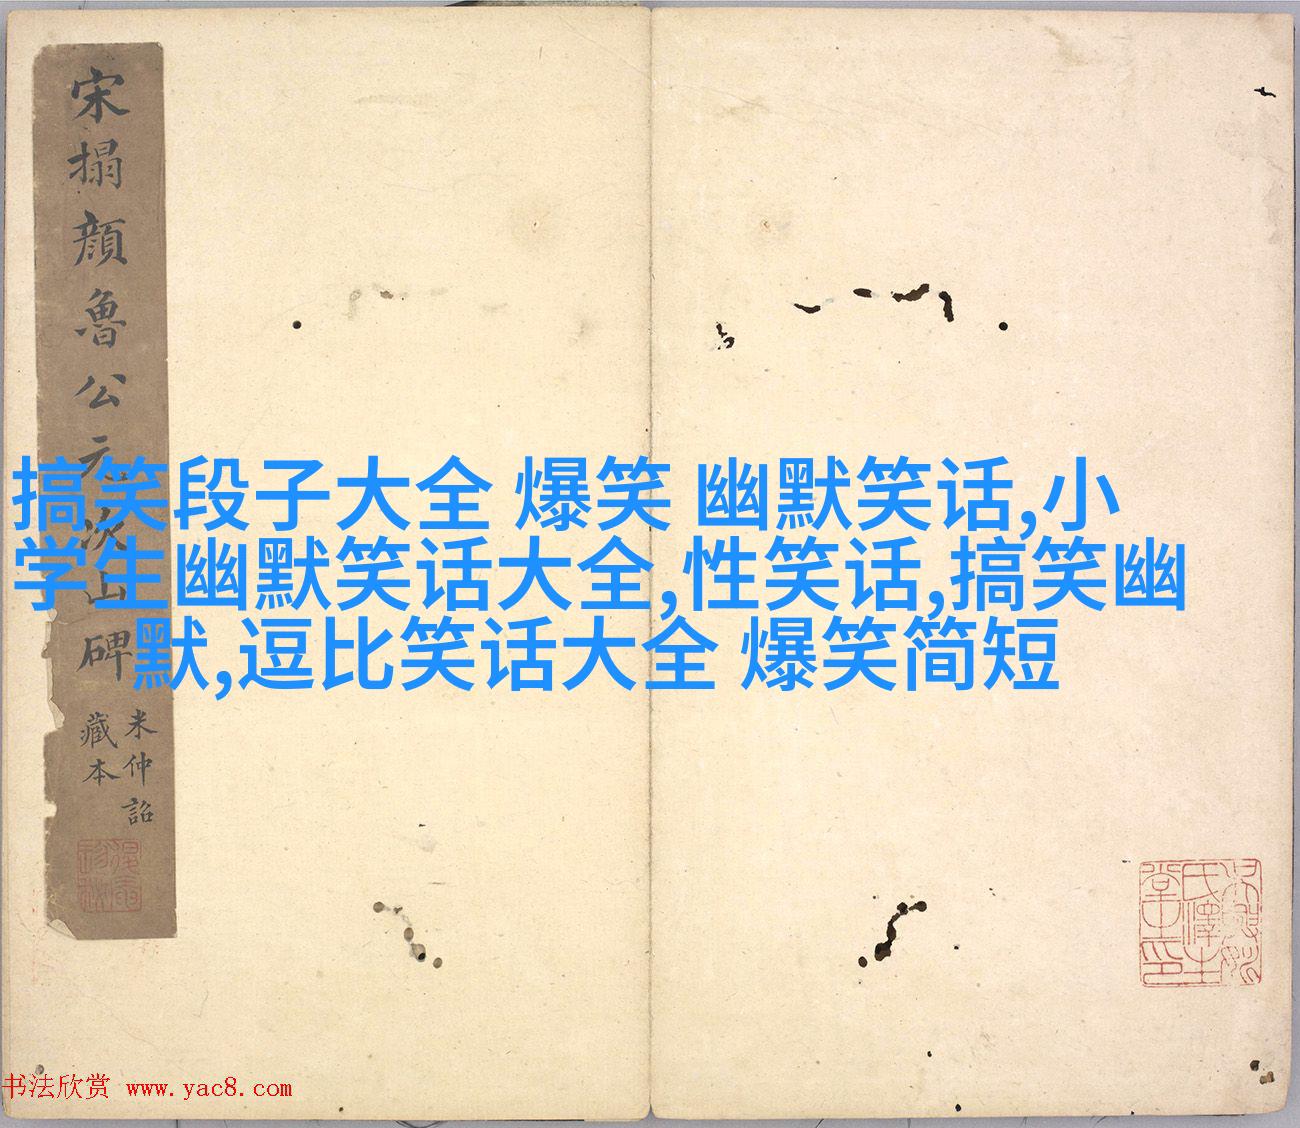 宋搨顔魯公元次山碑
米仲詔
藏本
搞笑段子大全 爆笑 幽默笑话,小
学生幽默笑话大全,性笑话,搞笑幽
默,逗比笑话大全 爆笑简短
书法欣赏 www.yac8.com